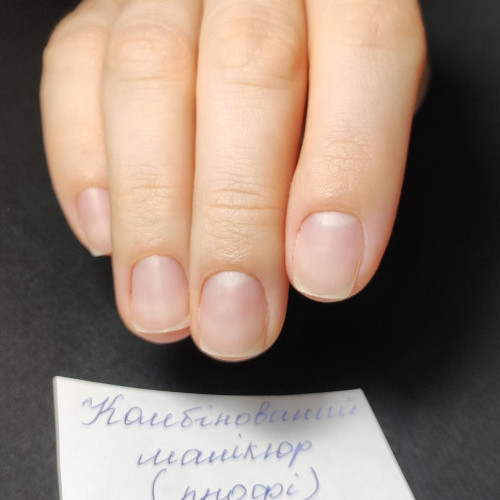 Комбінований
манікюр
(профі)